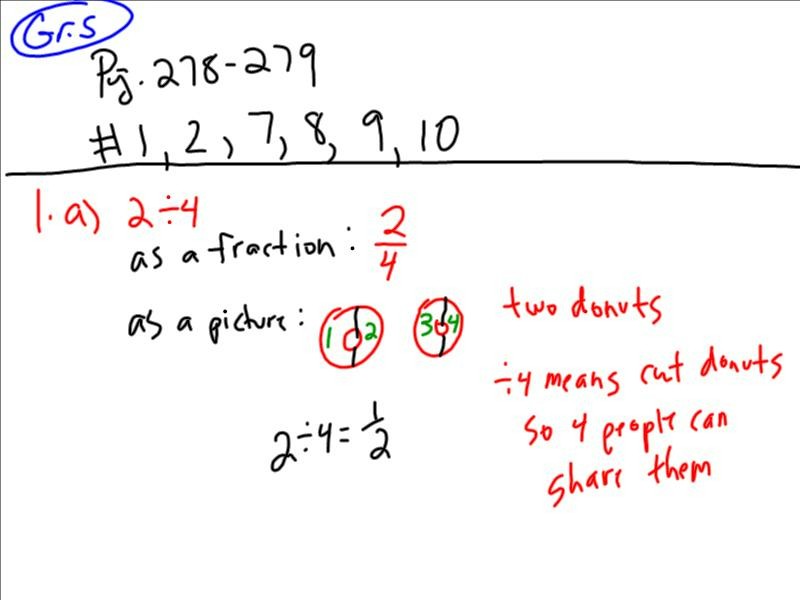 Gr.5
Pg. 278-279
#1, 2, 7, 8, 9, 10
1. a) 2÷4
as a fraction: 2/4
as a picture: 1 2 3 4
two donuts
÷4 means cut donuts
so 4 people can
share them
2÷4=1/2